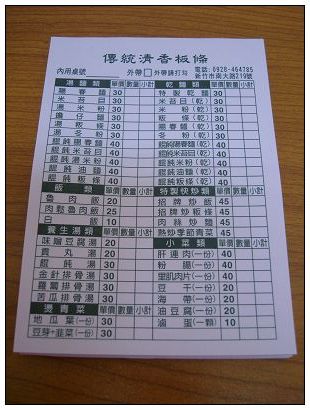 傳統清香板條
內用桌號 外帶□ 外帶請打勾 電話：0928-464785
新竹市南大路219號
湯麵類 單價 數量 小計 乾麵類 單價 數量 小計
陽春麵 30 特製乾麵 30
米苔目 30 米苔目(乾) 30
米粉 30 米粉(乾) 30
擔仔麵 30 粄條(乾) 30
湯粄條 30 陽春麵(乾) 30
湯冬粉 30 冬粉(乾) 30
餛飩陽春麵 40 餛飩陽春麵(乾) 40
餛飩米苔目 40 餛飩米苔目(乾) 40
餛飩湯米粉 40 餛飩米粉(乾) 40
餛飩油麵 40 餛飩油麵(乾) 40
餛飩粄條 40 餛飩粄條(乾) 40
飯類 單價 數量 小計 特製快炒類 單價 數量 小計
魯肉飯 20 招牌炒飯 45
肉鬆魯肉飯 25 招牌炒粄條 45
白飯 10 肉絲炒麵 45
養生湯類 單價 數量 小計 熱炒季節青菜 45
味噌豆腐湯 20 小菜類 單價 數量 小計
貢丸湯 20 肝連肉(一份) 40
餛飩湯 30 粉腸(一份) 40
金針排骨湯 30 里肌肉片(一份) 40
蘿蔔排骨湯 30 豆干(一份) 20
苦瓜排骨湯 30 海帶(一份) 20
燙青菜 單價 數量 小計 油豆腐(一份) 20
地瓜葉(一份) 30 滷蛋(一顆) 10
豆芽+韭菜(一份) 30